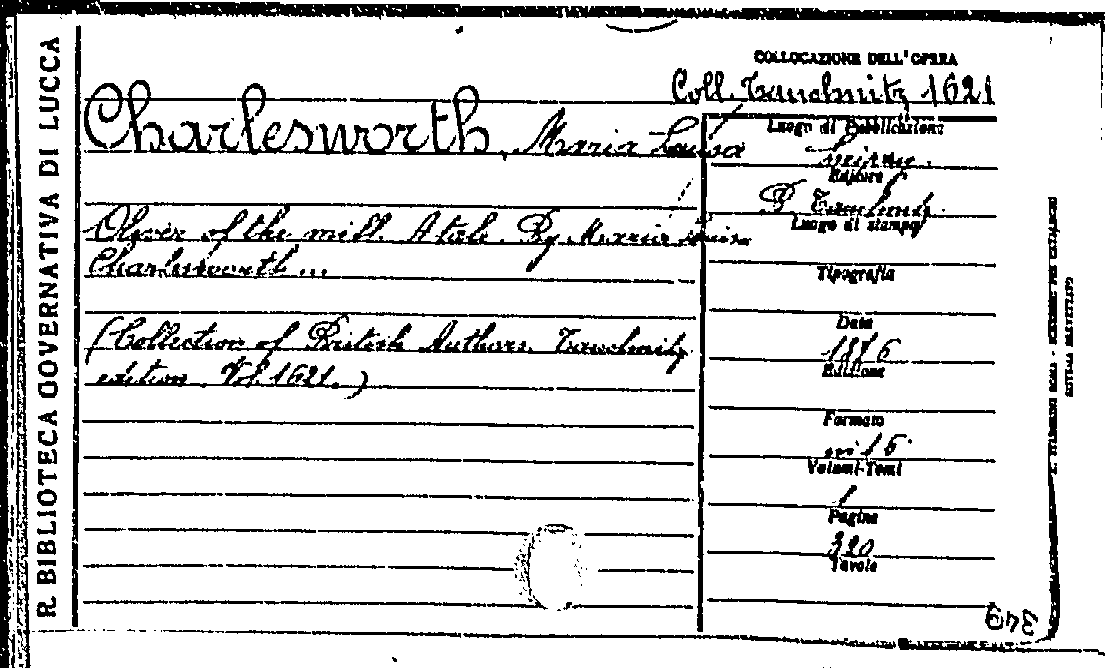 R. BIBLIOTECA GOVERNATIVA DI LUCCA
COLLOCAZIONE DELL'OPERA
Coll. Tauchnitz, 1621
Charlesworth, Maria Louisa
Oliver of the mill. A tale. By Maria Louisa
Charlesworth...
(Collection of British Authors. Tauchnitz
edition. Vol. 1621.)
Luogo di Pubblicazione
Editore
B. Tauchnitz
Luogo di stampa
Tipografia
Data
1876
Edizione
Formato
in 16
Volumi-Tomi
1
Pagine
320
Tavole
349